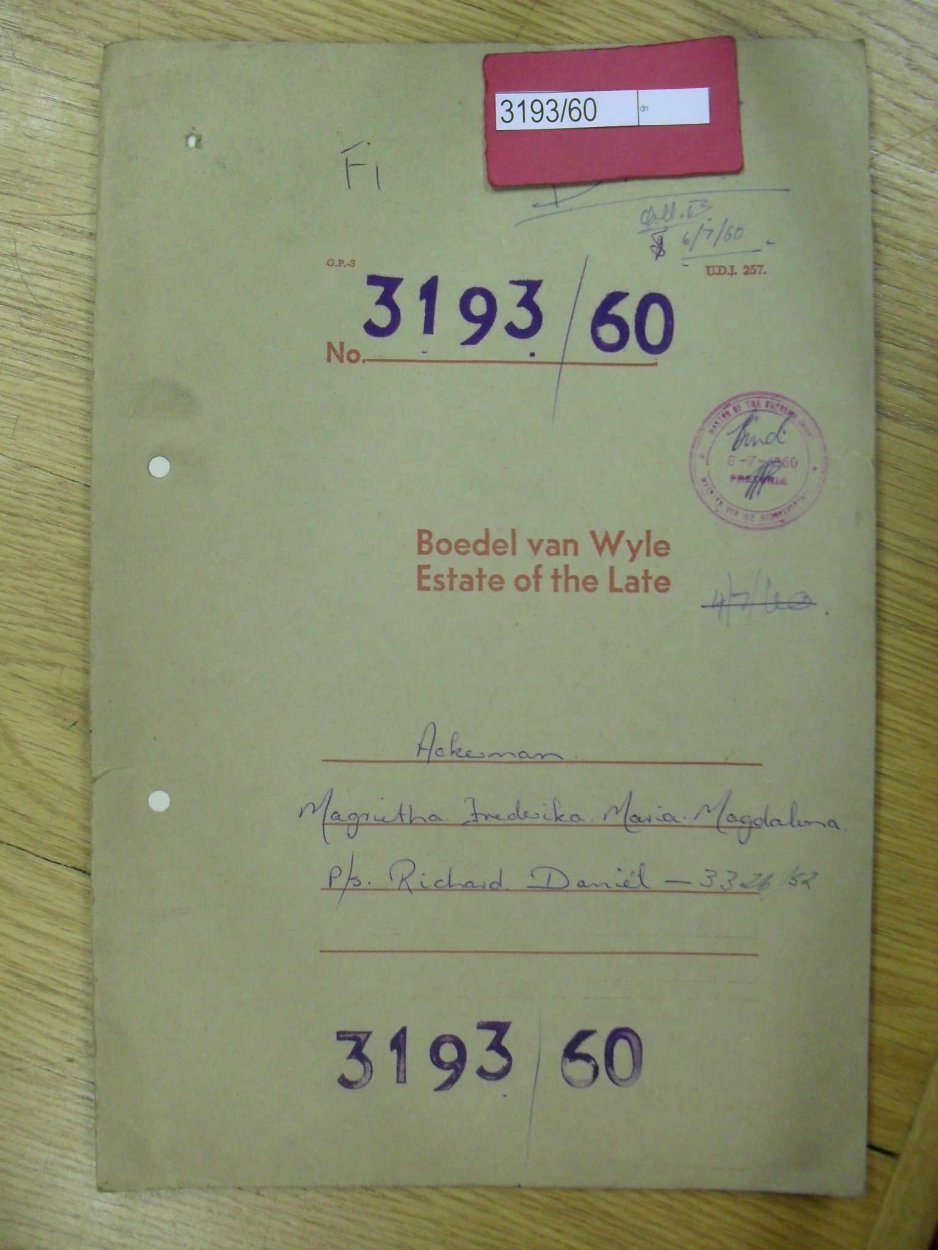 3193/60 dn
Fi
6/7/60
G.P.-S U.D.J. 257.
3193/60
No.
MASTER OF THE SUPREME
6-7-1960
PRETORIA
Boedel van Wyle
Estate of the Late
4/7/60
Ackerman.
Magrietha Frederika Maria Magdalena
p/s. Richard Daniël — 3326/52
3193/60